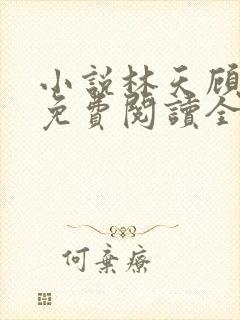 小説林天顾
免費閱讀全
何棄療